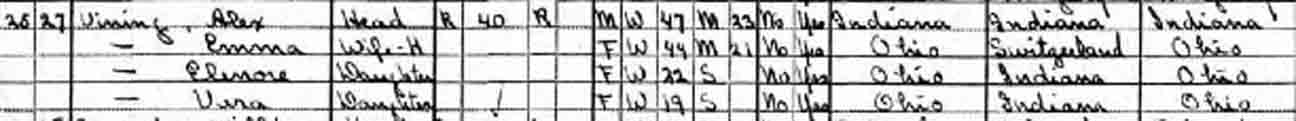 26 27 Vining, Alex Head R 40 R M W 47 M 23 No Yes Indiana Indiana Indiana
— Emma Wife-H F W 44 M 21 No Yes Ohio Switzerland Ohio
— Elenore Daughter F W 22 S No Yes Ohio Indiana Ohio
— Vera Daughter F W 19 S No Yes Ohio Indiana Ohio